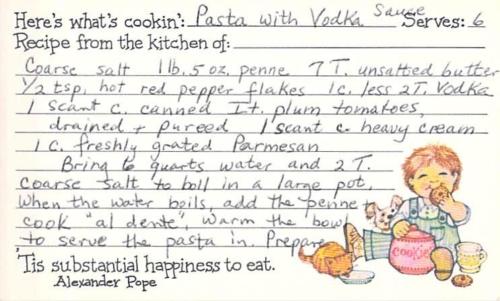 Here's what's cookin': Pasta with Vodka Sauce Serves: 6
Recipe from the kitchen of:
Coarse salt 1 lb. 5 oz. penne 7 T. unsalted butter
1/2 tsp. hot red pepper flakes 1 c. less 2 T. Vodka
1 scant c. canned It. plum tomatoes,
drained + pureed 1 scant c. heavy cream
1 c. freshly grated Parmesan
Bring 6 quarts water and 2 T.
coarse salt to boil in a large pot,
When the water boils, add the penne +
cook "al dente", warm the bowl
to serve the pasta in. Prepare
'Tis substantial happiness to eat.
Alexander Pope
cookie